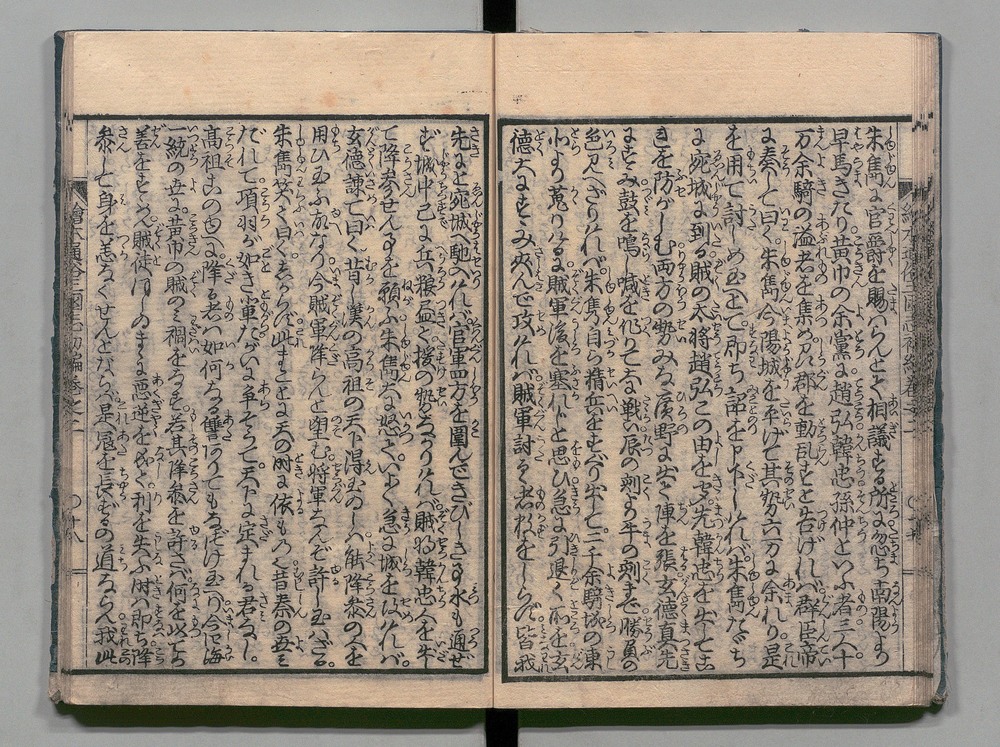 朱雋に官爵を賜はらんとて相議する所に忽ち南陽より
早馬きたり黄巾の余黨に趙弘韓忠孫仲といふ者三人十
万余騎の溢者を集め近郡を動乱すと告げれバ群臣帝
に奏して曰く朱雋今陽城を平げて其勢六万に余れり是
を用て討しめ玉へとて即ち詔を下しけれバ朱雋たゞち
に宛城に到る賊の大将趙弘この由を聞先韓忠を出して
きを防がしむ両方の勢みな廣野に出て陣を張玄德真先
にすゝみ鼓を鳴し喊を作りて戦ひ辰の刻より午の刻まで勝負の
色見へざりけれバ朱雋自ら精兵をすぐり出し二千余騎城の東
北より蒐りける賊軍後を塞れじと思ひ急に引退く所を玄
德大にすゝみ攻れバ賊軍討るゝ者数をしらず皆我
先にと宛城へ馳入れバ官軍四方を圍んできびしき事水も通ぜ
ず城中已に兵粮盡て援の勢もなかりけれバ賊将韓忠人を出し
て降参せん事を願ふ朱雋大に怒ていよいよ急に城をせめけれバ
玄德諫て曰く昔し漢の高祖の天下得玉ひしハ能降参の人を
用ひ玉ふ故なり今賊軍降らんと望む将軍なんぞ許し玉ハざる
朱雋笑て曰くしからず此まことに天の時に依もの也昔秦の世ミ
だれて項羽が如き輩たがひに争そうて天下に定まれる君なし
高祖この時に降る者ハ如何なる讐ありてもなだけ玉へり今四海
一統の世に黄巾の賊のミ禍をなす若其降参を許さバ何を以てか
善をすゝめん賊徒ほしいまゝに悪逆をなし利を失ふ時ハ即ち降
参して身を恙なくせんとならバ是冦を長ずるの道ならん我此
繪本通俗三國志初編巻之二
〇十八